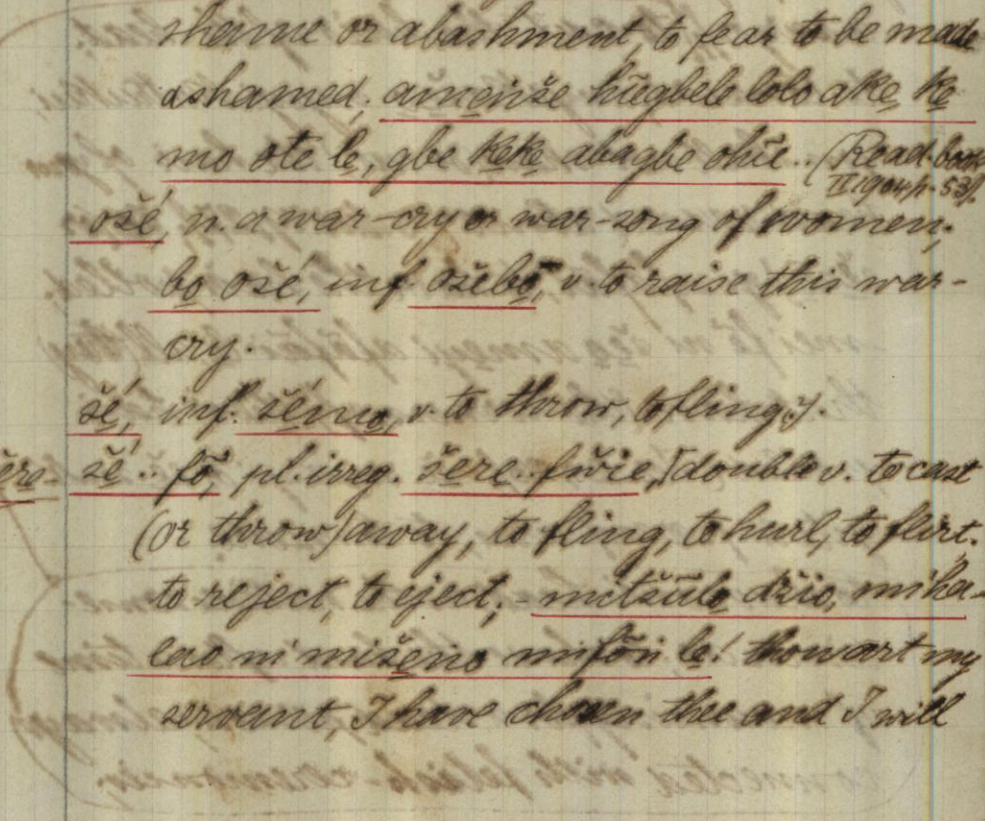 shame or abashment, to fear to be made
ashamed; amẹnše hũgbele lolo akẹ kẹ
mo ote lẹ, gbe kẹkẹ abagbe ohĩe.. (Read. book
II. 1904 p. 53).
ošé, n. a war-cry or war-song of women;
bọ ošé, inf. ošebọ, v. to raise this war-
cry.
šé, inf. šémọ, v. to throw, to fling;
šé.. fõ, pl. irreg. šere.. fũie, double v. to cast
(or throw) away, to fling, to hurl, to flirt.
to reject, to eject; - mitšũlọ džio, miha-
lao ni mišẹno mifõŋ lẹ! thou art my
servant, I have chosen thee and I will